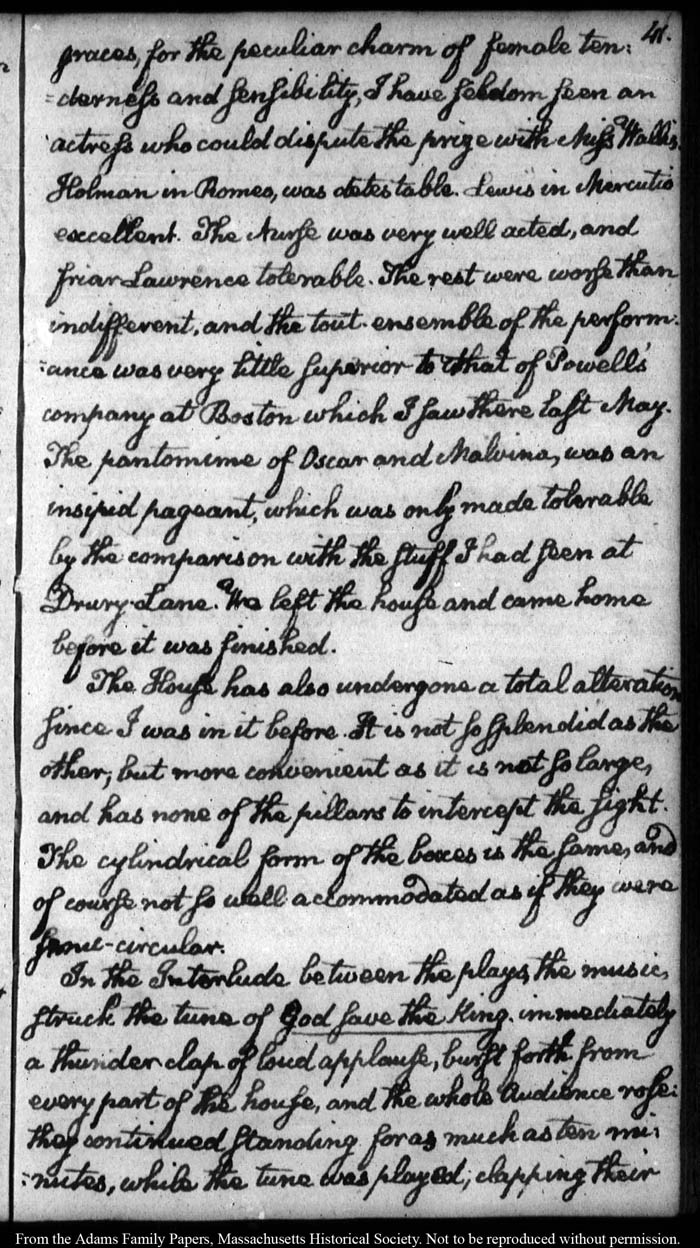 41.
graces, for the peculiar charm of female ten:
=derneſs and ſenſibility, I have ſeldom ſeen an
actreſs who could dispute the prize with Miſs Wallis.
Holman in Romeo, was detestable. Lewis in Mercutio
excellent. The Nurſe was very well acted, and
friar Lawrence tolerable. The rest were worſe than
indifferent, and the tout-ensemble of the perform:
:ance was very little ſuperior to that of Powell's
company at Boston which I ſaw there laſt May.
The pantomime of Oscar and Malvina, was an
insipid pageant, which was only made tolerable
by the comparison with the ſtuff I had ſeen at
Drury-Lane. We left the houſe and came home
before it was finished.
The Houſe has also undergone a total alteration
ſince I was in it before. It is not ſo ſplendid as the
other, but more convenient as it is not ſo large,
and has none of the pillars to intercept the ſight.
The cylindrical form of the boxes is the ſame, and
of courſe not ſo well accommodated as if they were
-circular.
In the Interlude between the plays, the music,
ſtruck the tune of God ſave the King. immediately
a thunder clap of loud applauſe, burſt forth from
every part of the houſe, and the whole Audience roſe:
they continued ſtanding for as much as ten mi:
:nutes, while the tune was played; clapping their
From the Adams Family Papers, Massachusetts Historical Society. Not to be reproduced without permission.